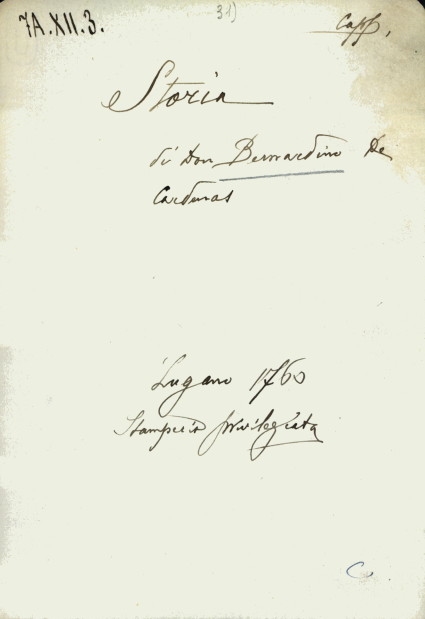 7A.XII.3.
31)
Capp.
Storia
di Don Bernardino De
Cardenas
Lugano 1760
Stamperia privilegiata
C